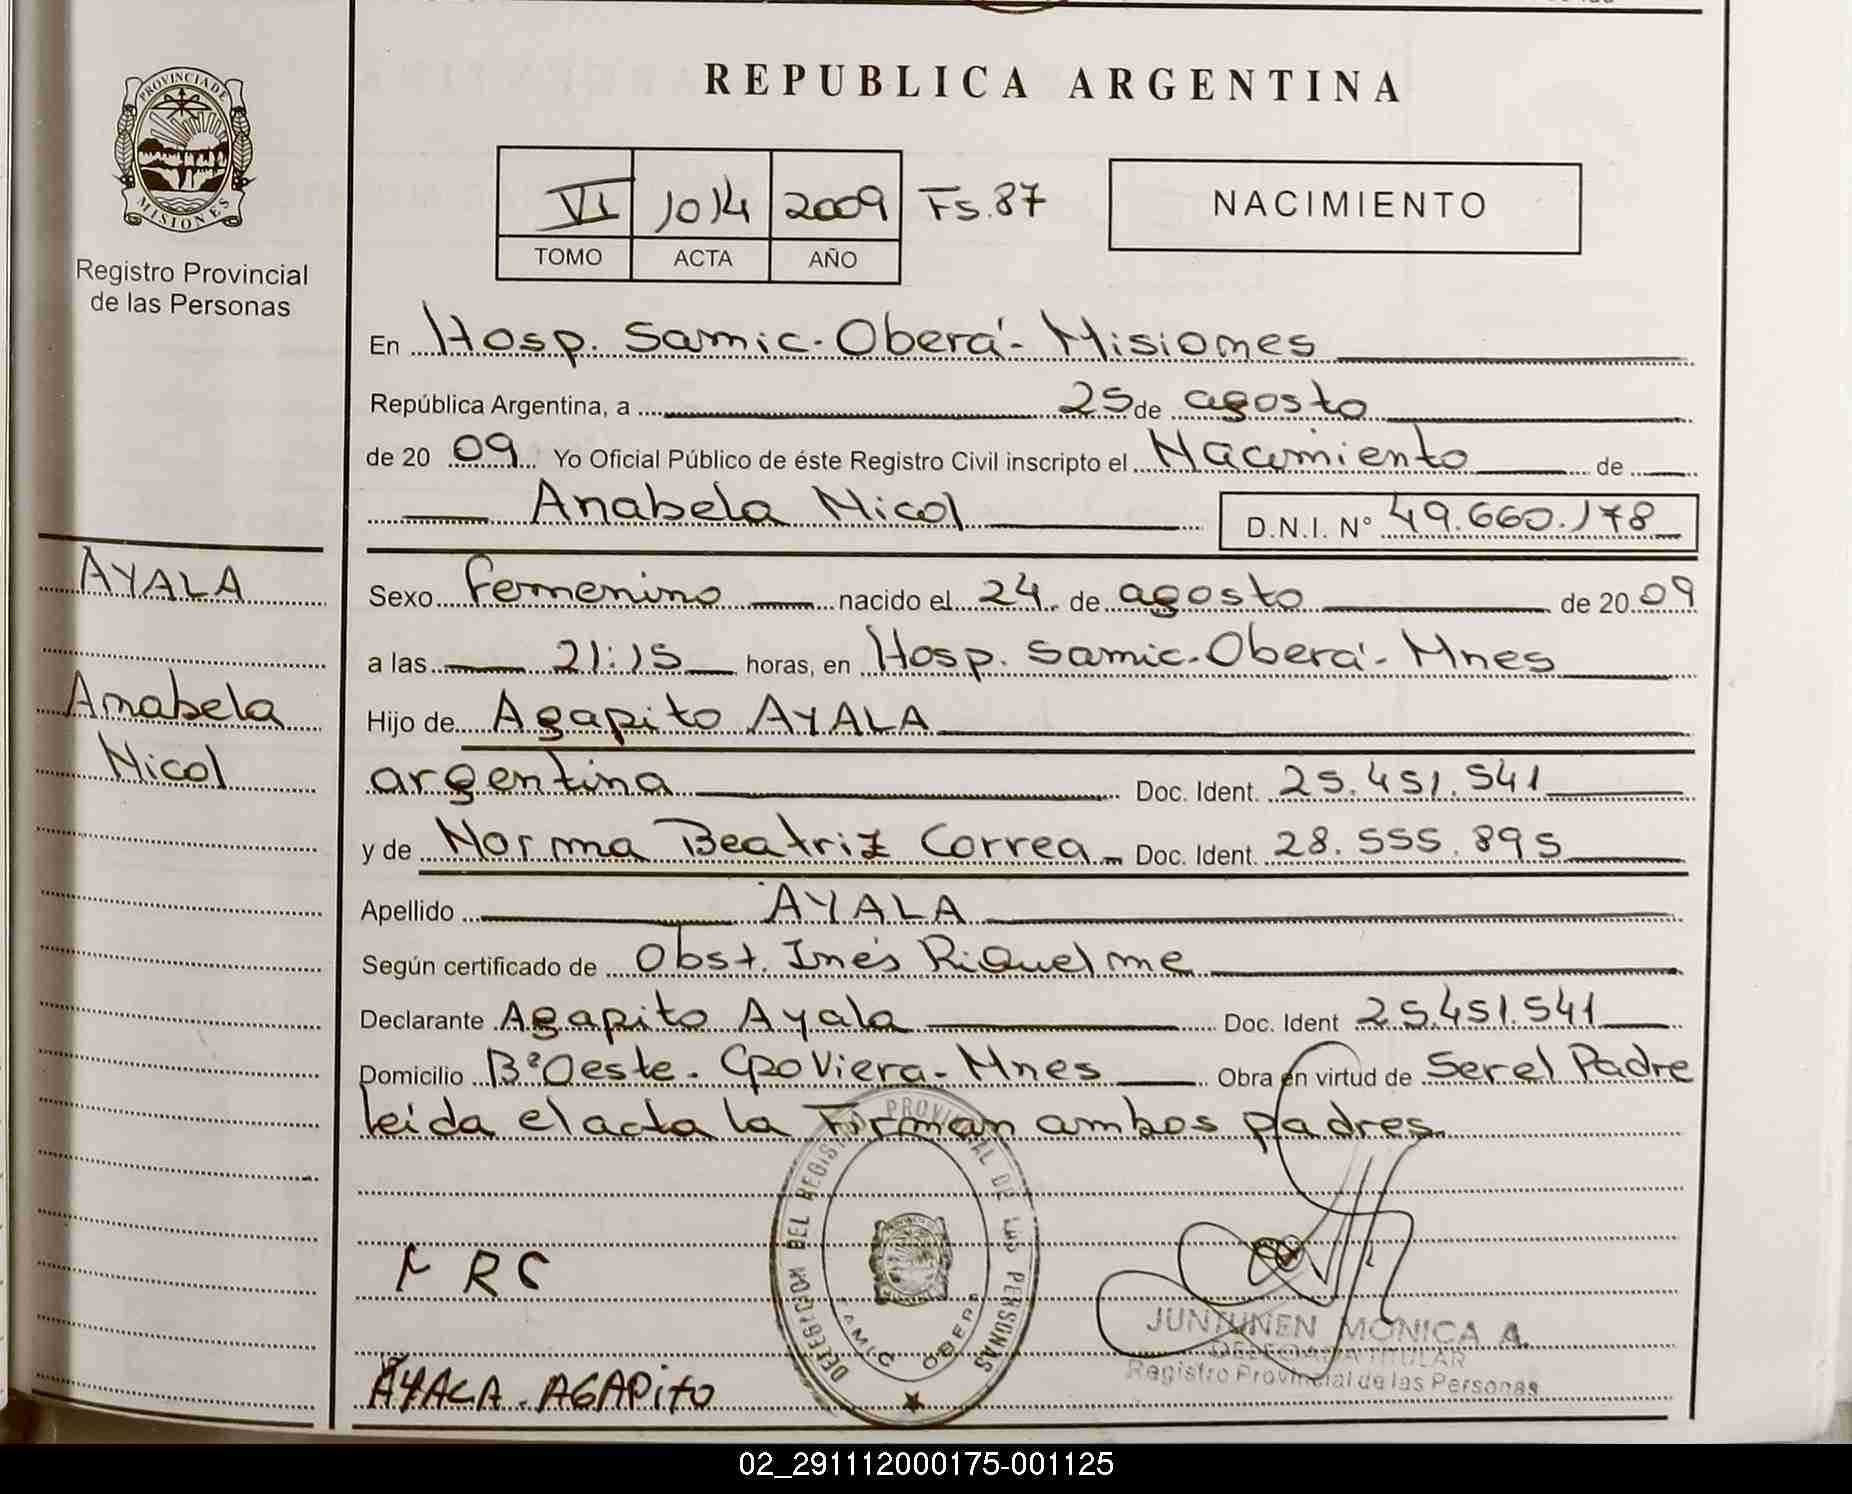 REPUBLICA ARGENTINA
PROVINCIA DE MISIONES
Registro Provincial
de las Personas
VI 1014 2009 Fs.87
TOMO ACTA AÑO
NACIMIENTO
En Hosp. Samic-Oberá-Misiones
República Argentina, a 25 de agosto
de 20 09 Yo Oficial Público de éste Registro Civil inscripto el Nacimiento de
Anabela Nicol D.N.I. N° 49.660.178
AYALA
Anabela
Nicol
Sexo femenino nacido el 24 de agosto de 20 09
a las 21:15 horas, en Hosp. Samic-Oberá-Mnes
Hijo de Agapito AYALA
argentina Doc. Ident. 25.451.541
y de Norma Beatriz Correa Doc. Ident. 28.555.895
Apellido AYALA
Según certificado de Obst. Inés Riquelme
Declarante Agapito Ayala Doc. Ident 25.451.541
Domicilio B° Oeste - Cpo Viera - Mnes Obra en virtud de Ser el Padre
leida el acta la Firman ambos padres.
DELEGACION DEL REGISTRO PROVINCIAL DE LAS PERSONAS
SAMIC OBERA
AYALA. AGAPITO
JUNTUNEN MONICA A.
DELEGADA TITULAR
Registro Provincial de las Personas
02_291112000175-001125